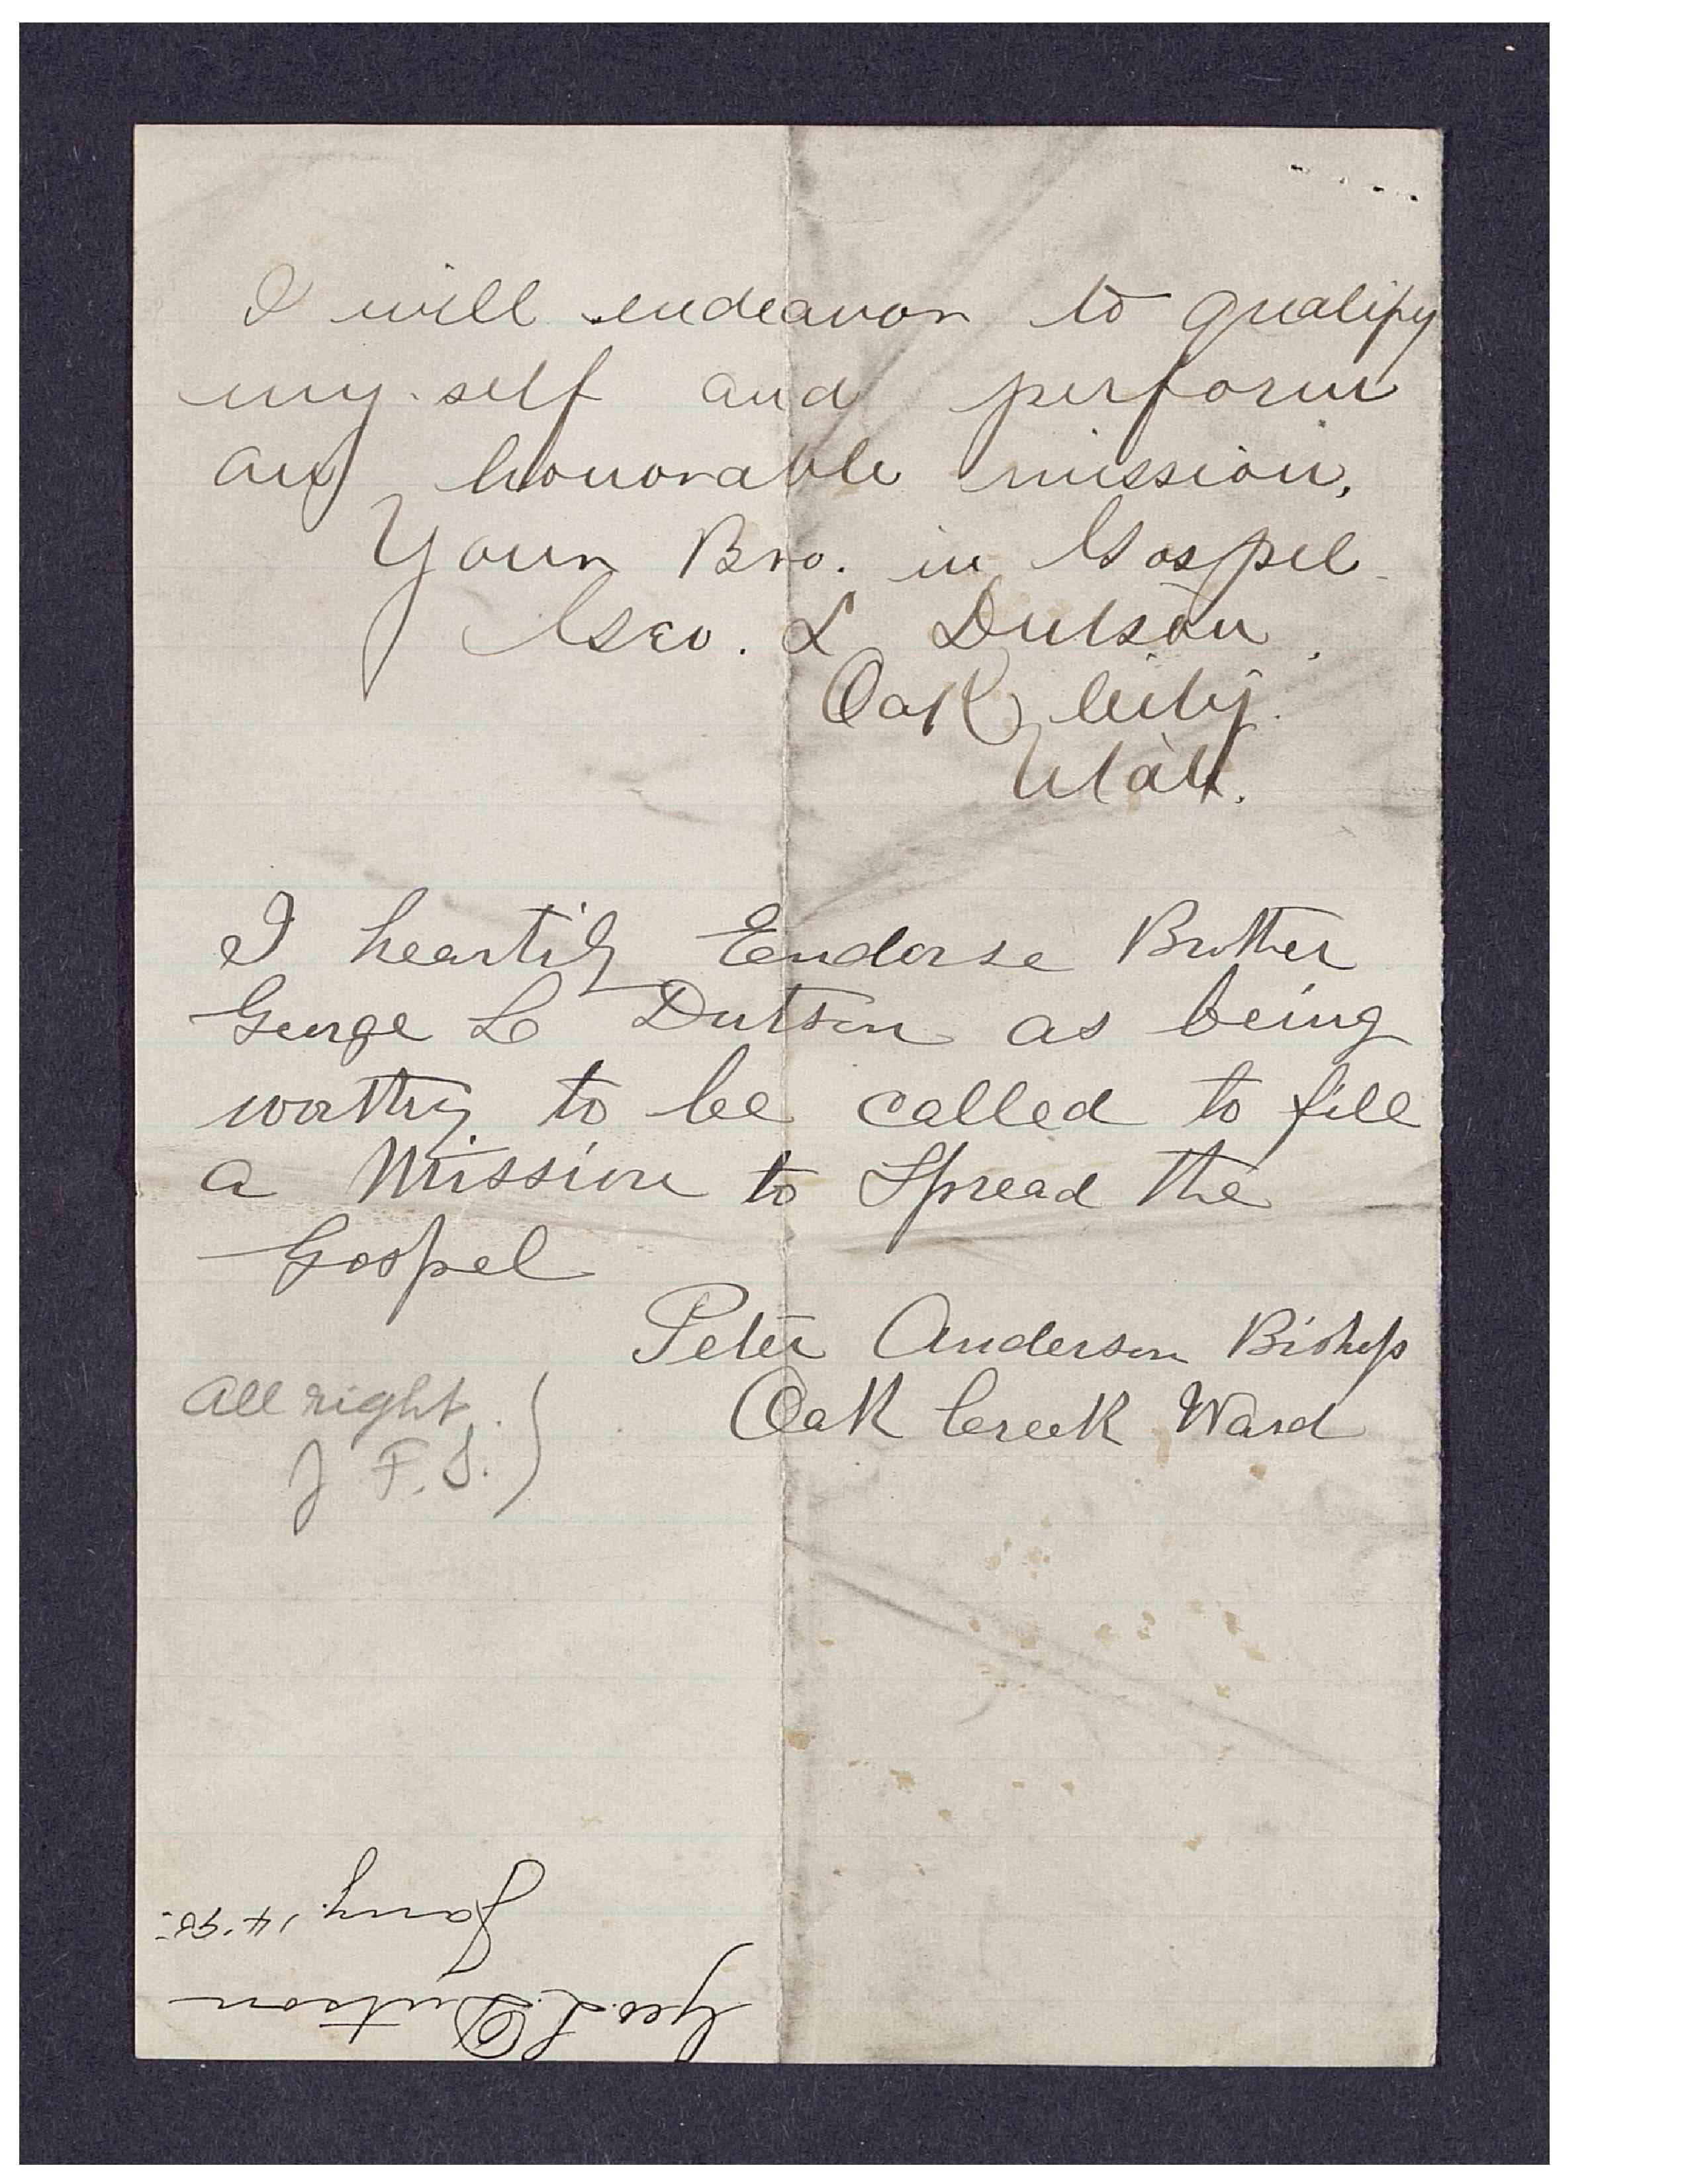 I will endeavor to qualify
my self and perform
an honorable mission.
Your Bro. in Gospel
Geo. L Dutson.
Oak City.
Utah.
I heartily Eendorse Brother
George L Dutson as being
worthy to be called to fill
a Mission to Spread the
Gospel
Peter Anderson Bishop
Oak Creek Ward
All right.
J F. S.
Geo. L. Dutson
Jany. 14 '98.